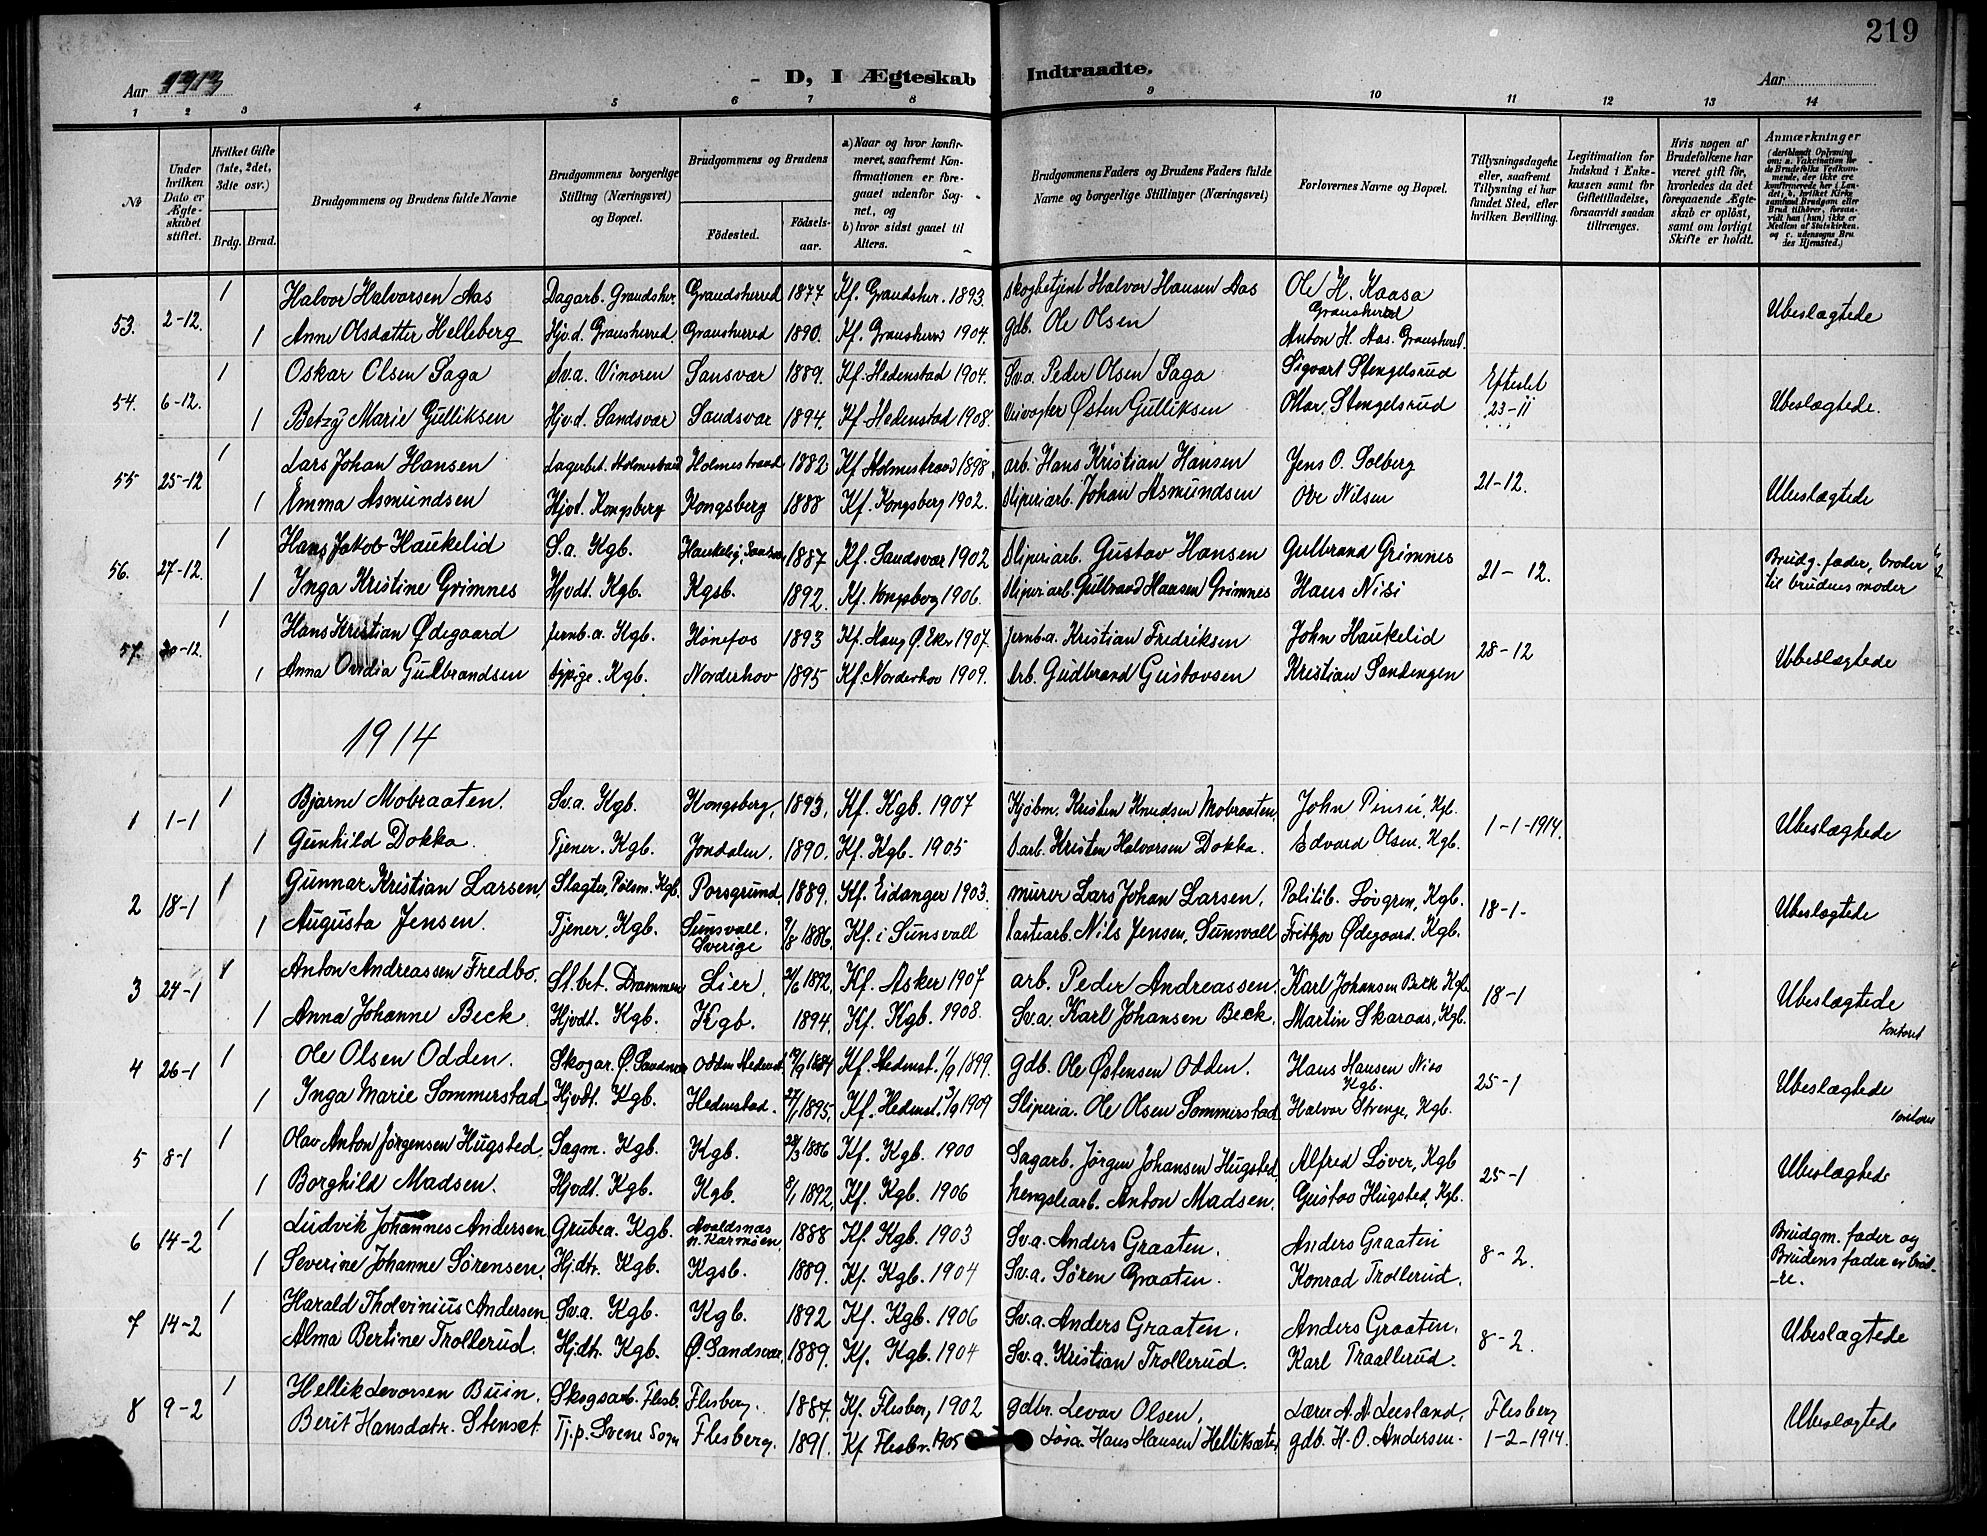 219
Aar 1913 D, I Ægteskab Indtraadte. Aar
1 2 3 4 5 6 7 8 9 10 11 12 13 14
No
Under hvilken Dato er Ægteskabet stiftet.
Hvilket Gifte (1ste, 2det, 3die osv.)
Brdg. Brud.
Brudgommens og Brudens fulde Navne
Brudgommens borgerlige Stilling (Næringsvei) og Bopæl.
Brudgommens og Brudens
Fødested. Fødselsaar.
a) Naar og hvor konfirmeret, saafremt Konfirmationen er foregaaet udenfor Sognet, og
b) hvor sidst gaaet til Alters.
Brudgommens Faders og Brudens Faders fulde Navne og borgerlige Stillinger (Næringsvei)
Forlovernes Navne og Bopæl.
Tillysningsdagene eller, saafremt Tillysning ei har fundet Sted, efter hvilken Bevilling.
Legitimation for Indskud i Enkekassen samt for Giftetilladelse, forsaavidt saadan tiltrænges.
Hvis nogen af Brudefolkene har været gift før, hvorledes da det foregaaende Ægteskab er opløst, samt om lovligt Skifte er holdt.
Anmærkninger
53. 2-12. 1 Halvor Halvorsen Aas Dagarb. Grandsher. Grandsherred 1877 Kf. Grandsher. 1893. Skogbetjent Halvor Hansen Aas Ole H. Kaasa Gransherred Ubeslægtede
1 Anne Olsdatter Helleberg Hjvd. Gransherred. Gransherred 1890. Kf. Gransherred 1904. gdb. Ole Olsen Anton H. Aas. Gransherred.
54. 6-12. 1 Oskar Olsen Saga Sv.a. Vinoren Sansvær 1889. Kf. Hedenstad 1904. Sv.a. Peder Olsen Saga Sigvart Stengelsrud Efteset 23-11 Ubeslægtede.
1 Betzy Marie Gulliksen Hjv.d. Sandsvær Sandsvær 1894. Kf. Hedenstad 1908. Veivogter Østen Gulliksen Ottar Stengelsrud
55 25-12 1 Lars Johan Hansen Lagerbet. Holmestrand Holmestrand 1882 Kf. Holmestrand 1898 arb. Hans Kristian Hansen Jens O. Solberg 21-12. Ubeslægtede
1 Emma Asmundsen Hjvd. Kongsberg Kongsberg 1888 Kf. Kongsberg 1902. Sliperiarb. Johan Asmundsen Ove Nilsen
56. 27-12. 1 Hans Jakob Haukelid S.a. Kgb. 1887 Kf. Sandsvær 1902 Sliperiarb. Gustav Hansen Gulbrand Grimnes 21-12. Brudg. fader, broder til brudens moder
1 Inga Kristine Grimnes Hjvdt. Kgb. Kgsb. 1892. Kf. Kongsberg 1906. Sliperiarb. Gulbrand Hansen Grimnes Hans Nisi
57. 30-12. 1 Hans Kristian Ødegaard Jernb.a. Kgb. Hønefos 1893 Kf. Haug Ø. Eker 1907. Jernb.a. Kristian Fredriksen John Haukelid 28-12 Ubeslægtede
1 Anna Ovidia Gulbrandsen Sypige. Kgb. Norderhov 1895 Kf. Norderhov 1909. Arb. Gudbrand Gustavsen Kristian Sandengen
1914
1 1-1 1 Bjarne Mobraaten. Sv.a. Kgb. Kongsberg, 1893. Kf. Kgb. 1907 Kjøbm. Kristen Knudsen Mobraaten John Kgb. 1-1-1914. Ubeslægtede
1 Gunhild Dokka. Tjener. Kgb. Jondalen. 1890. Kf. Kgb. 1905 arb. Kristen Halvorsen Dokka. Edvard Olsen. Kgb.
2 18-1 1 Gunnar Kristian Larsen. Slagter, Pølsm. Kgb. Porsgrund. 1889. Kf. Eidanger 1903. murer Lars Johan Larsen. Politib. Løvgren, Kgb. 18-1- Ubeslægtede
1 Augusta Jensen. Tjener. Kgb. Sunsvall. Sverige 7/8 1886. Kf. i Sunsvall arb. Nils Jensen, Sunsvall Frithjov Ødegaard. Kgb.
3 24-1 1 Anton Andreassen Fredbo. St.bet. Drammen Lier. 1892. Kf. Asker 1907 arb. Peder Andreassen Karl Johansen Beck Kgb. 18-1 Ubeslægtede
1 Anna Johanne Beck. Hjvdt. Kgb. Kgb. 1894. Kf. Kgb. 1908. Sv.a. Karl Johansen Beck. Martin Skaraas, Kgb.
4 26-1 1 Ole Olsen Odden. Skogar. Ø. Sandsvær Odden Hedenst. 1884 Kf. Hedenst. 1/9 1899. gdb. Ole Østensen Odden. Hans Hansen Niss Kgb. 25-1 Ubeslægtede
1 Inga Marie Sommerstad Hjvdt. Kgb. Hedenstad. 27/1 1895. Kf. Hedenst. 3/9 1909 Sliperia. Ole Olsen Sommerstad Halvor Strenge, Kgb.
5 8-1 1 Olav Anton Jørgensen Hugsted. Sagm. Kgb. Kgb. 28/3 1886 Kf. Kgb. 1900 Sagarb. Jørgen Johansen Hugsted Alfred Løver, Kgb 25-1 Ubeslægtede
1 Borghild Madsen. Hjvdt. Kgb. Kgb. 8/1 1892. Kf. Kgb. 1906 hengslearb. Anton Madsen. Gustav Hugsted, Kgb.
6 14-2 1 Ludvik Johannes Andersen Grubea. Kgb. Avaldsnæs n. Karmøen. 1888 Kf. Kgb. 1903 Sv.a. Anders Graaten. Anders Graaten 8-2. Brudgm. fader og Brudens fader er brødre.
1 Severine Johanne Sørensen. Hj.dtr. Kgb. Kgsb. 1889. Kf. Kgb. 1904 Sv.a. Søren Graaten. Konrad Trollerud.
7 14-2 1 Harald Tholvinius Andersen Sv.a. Kgb. Kgb. 1892 Kf. Kgb. 1906 Sv.a. Anders Graaten. Anders Graaten. 8-2. Ubeslægtede
Alma Bertine Trollerud. Hj.dtr. Kgb. Ø. Sandsvær. 1889. Kf. Kgb. 1904 Sv.a. Kristian Trollerud. Karl Traallerud.
8 9-2 1 Hellik Levorsen Buin. Skogsarb. Flesb. Flesberg. 1887. Kf. Flesber, 1902 gdbr. Levor Olsen. Lærer A. A. Leesland. Flesberg 1-2-1914. Ubeslægtede
Berit Hansdatr. Stenset Tj.p. Svene Sogn Flesberg. 1891. Kf Flesbr. 1905 Hans Hansen Helliksæter gdb. H. O. Andersen.